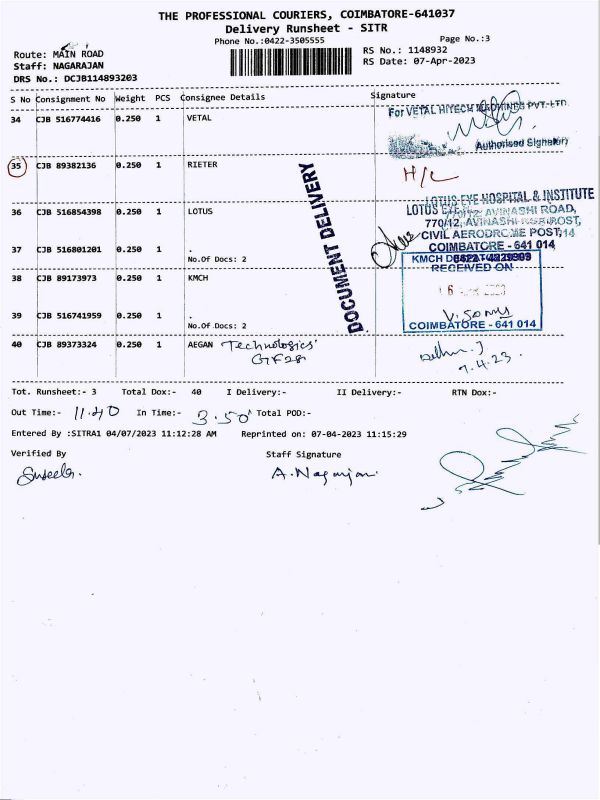 THE PROFESSIONAL COURIERS, COIMBATORE-641037
Delivery Runsheet - SITR
Phone No.:0422-3505555 Page No.:3
Route: MAIN ROAD RS No.: 1148932
Staff: NAGARAJAN RS Date: 07-Apr-2023
DRS No.: DCJB114893203
S No Consignment No Weight PCS Consignee Details Signature
34 CJB 516774416 0.250 1 VETAL
For VETAL HITECH MACHINES PVT. LTD.
Authorised Signatory
35 CJB 89382136 0.250 1 RIETER H/C
DOCUMENT DELIVERY
36 CJB 516854398 0.250 1 LOTUS
LOTUS EYE HOSPITAL & INSTITUTE
770/12, AVINASHI ROAD,
CIVIL AERODROME POST,
COIMBATORE - 641 014
37 CJB 516801201 0.250 1 .
No.Of Docs: 2
38 CJB 89173973 0.250 1 KMCH
KMCH
RECEIVED ON
39 CJB 516741959 0.250 1 .
No.Of Docs: 2
COIMBATORE - 641 014
40 CJB 89373324 0.250 1 AEGAN Technologies
7.4.23.
Tot. Runsheet:- 3 Total Dox:- 40 I Delivery:- II Delivery:- RTN Dox:-
Out Time:- 11.40 In Time:- 3.50 Total POD:-
Entered By :SITRA1 04/07/2023 11:12:28 AM Reprinted on: 07-04-2023 11:15:29
Verified By Staff Signature
Suseela. A. Nagarajan.